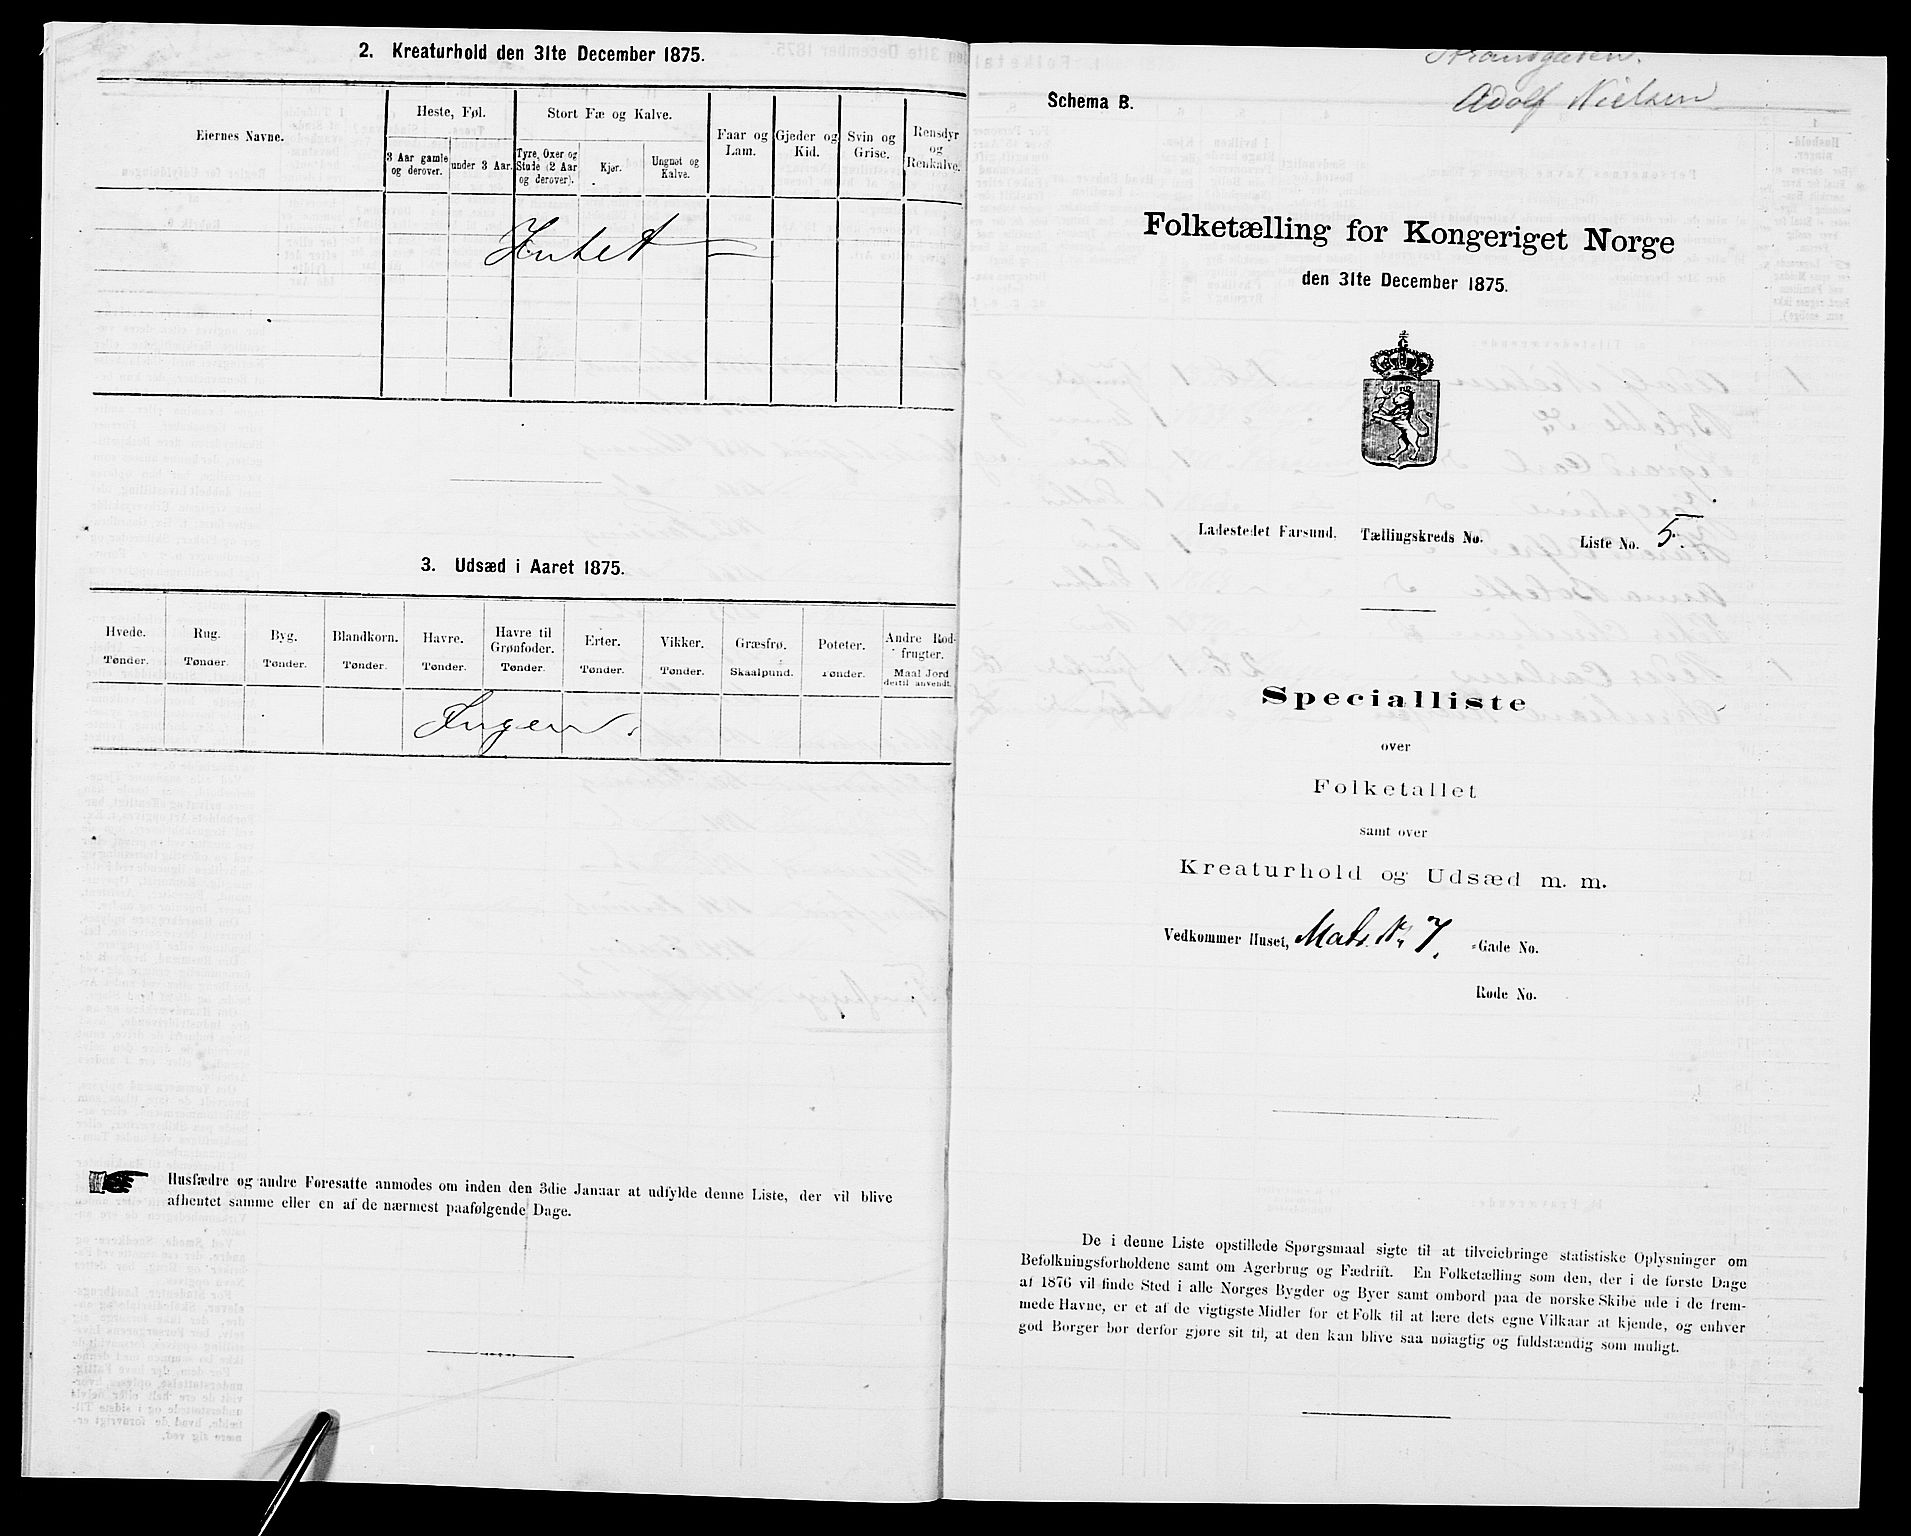 2. Kreaturhold den 31te December 1875.
Eiernes Navne.
Heste, Føl.
Stort Fæ og Kalve.
Faar og Lam.
Gjeder og Kid.
Svin og Grise.
Rensdyr og Renkalve.
3 Aar gamle og derover.
under 3 Aar.
Tyre, Oxer og Stude (2 Aar og derover).
Kjør.
Ungnøt og Kalve.
Intet
3. Udsæd i Aaret 1875.
Hvede.
Rug.
Byg.
Blandkorn.
Havre.
Havre til Grønfoder.
Erter.
Vikker.
Græsfrø.
Poteter.
Andre Rodfrugter.
Tønder.
Tønder.
Tønder.
Tønder.
Tønder.
Tønder.
Tønder.
Tønder.
Skaalpund.
Tønder.
Maal Jord dertil anvendt.
Ingen.
Husfædre og andre Foresatte anmodes om inden den 3die Januar at udfylde denne Liste, der vil blive
afhentet samme eller en af de nærmest paafølgende Dage.
Strandgaden.
Adolf Nielsen
Schema B.
Folketælling for Kongeriget Norge
den 31te December 1875.
Ladestedet Farsund. Tællingskreds No. Liste No. 5.
Specialliste
over
Folketallet
samt over
Kreaturhold og Udsæd m. m.
Vedkommer Huset, Matr. N. 7. -Gade No.
Rode No.
De i denne Liste opstillede Spørgsmaal sigte til at tilveiebringe statistiske Oplysninger om
Befolkningsforholdene samt om Agerbrug og Fædrift. En Folketælling som den, der i de første Dage
af 1876 vil finde Sted i alle Norges Bygder og Byer samt ombord paa de norske Skibe ude i de frem-
mede Havne, er et af de vigtigste Midler for et Folk til at lære dets egne Vilkaar at kjende, og enhver
god Borger bør derfor gjøre sit til, at den kan blive saa nøiagtig og fuldstændig som muligt.